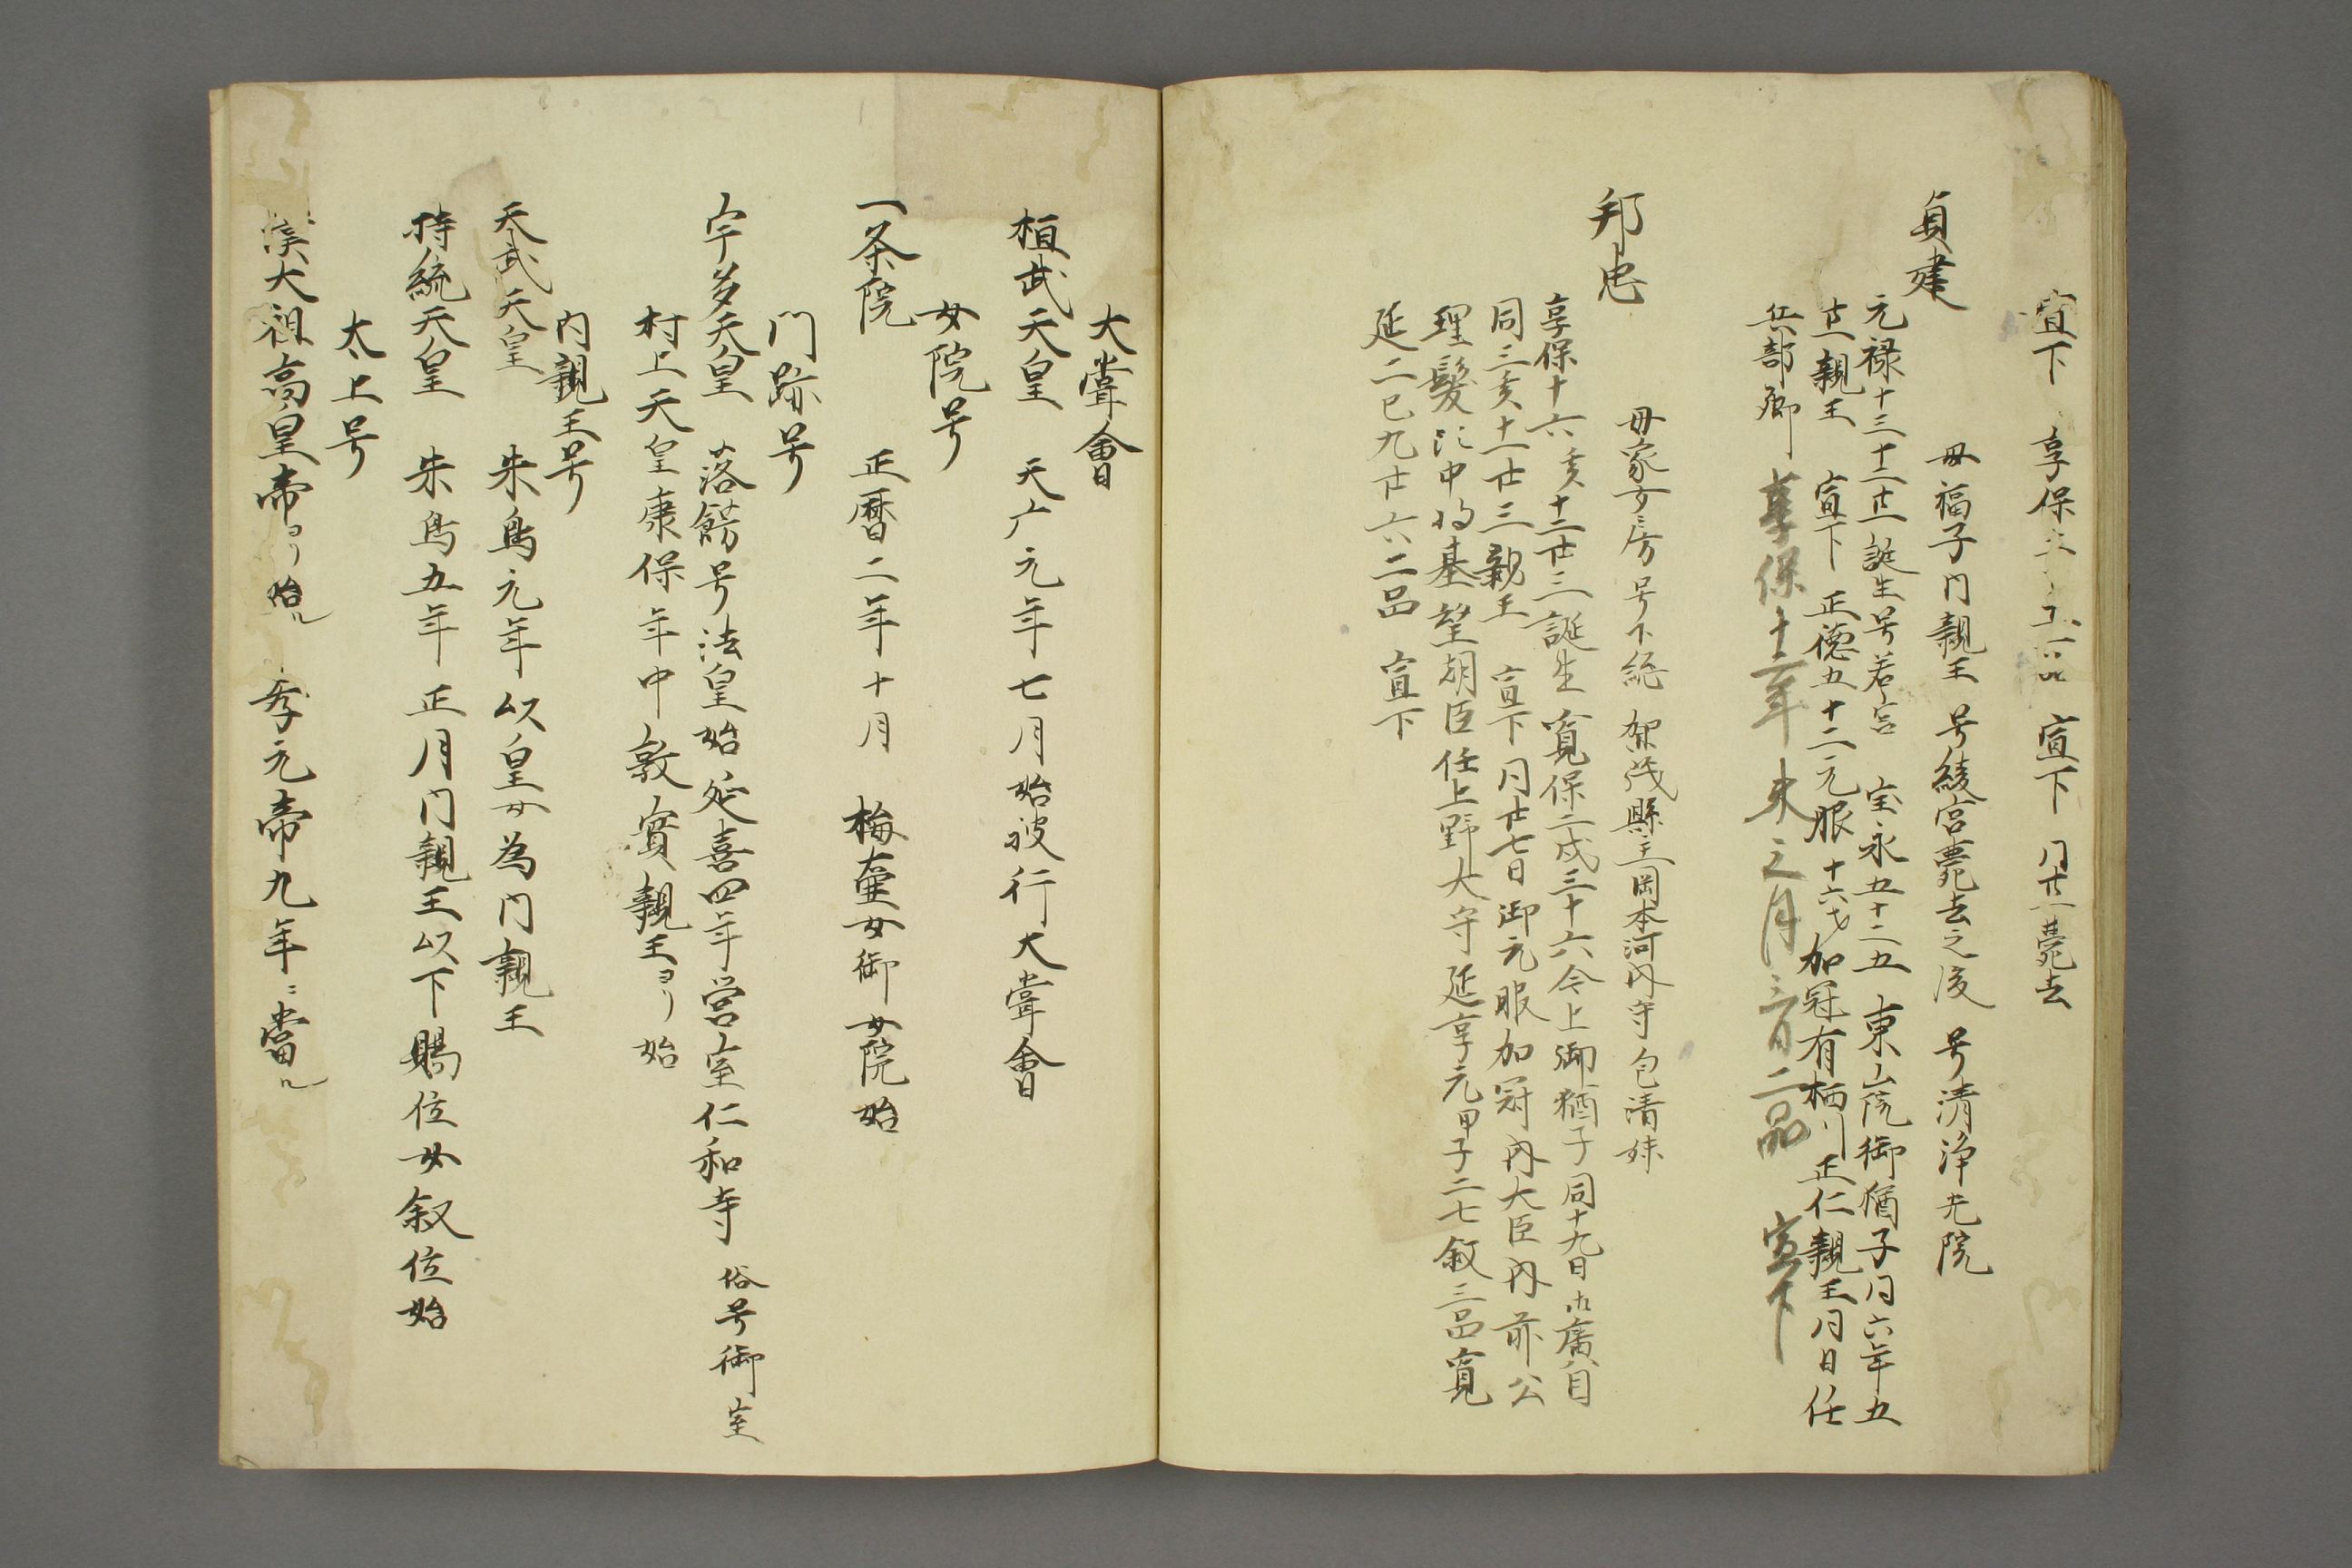 宣下 享保 品 宣下 同廿一薨去
貞建
母福子内親王 号綾宮薨去之後 号清浄光院
元禄十三十二廿一誕生号若宮 宝永五十二五 東山院御猶子同六年五
廿一親王 宣下 正徳五十二元服十六才加冠有栖川正仁親王同日任
兵部卿 享保十二年 未之月三日二品 宣下
邦忠
母家女房 号下総 賀茂縣主岡本河内守 包清妹
享保十六亥十二廿三誕生 寛保二戌三十六今上御猶子同十九日 廣自
同三亥十一廿三親王 宣下 同廿七日御元服加冠内大臣内前公
理髪 中将基望朝臣任上野大守延享元甲子二七叙三品寛
延二巳九廿六二品 宣下
大嘗會
桓武天皇 天广元年七月始被行大嘗會
女院号
一条院 正暦二年十月 梅壷女御女院始
門跡号
宇多天皇 落餝号法皇始 延喜四年営室仁和寺 俗号御室
村上天皇康保年中敦實親王ヨリ始
内親王号
天武天皇 朱鳥元年以皇女為内親王
持統天皇 朱鳥五年正月内親王以下賜位女叙位始
太上号
漢大祖高皇帝ヨリ始ル 孝元帝九年ニ當ル